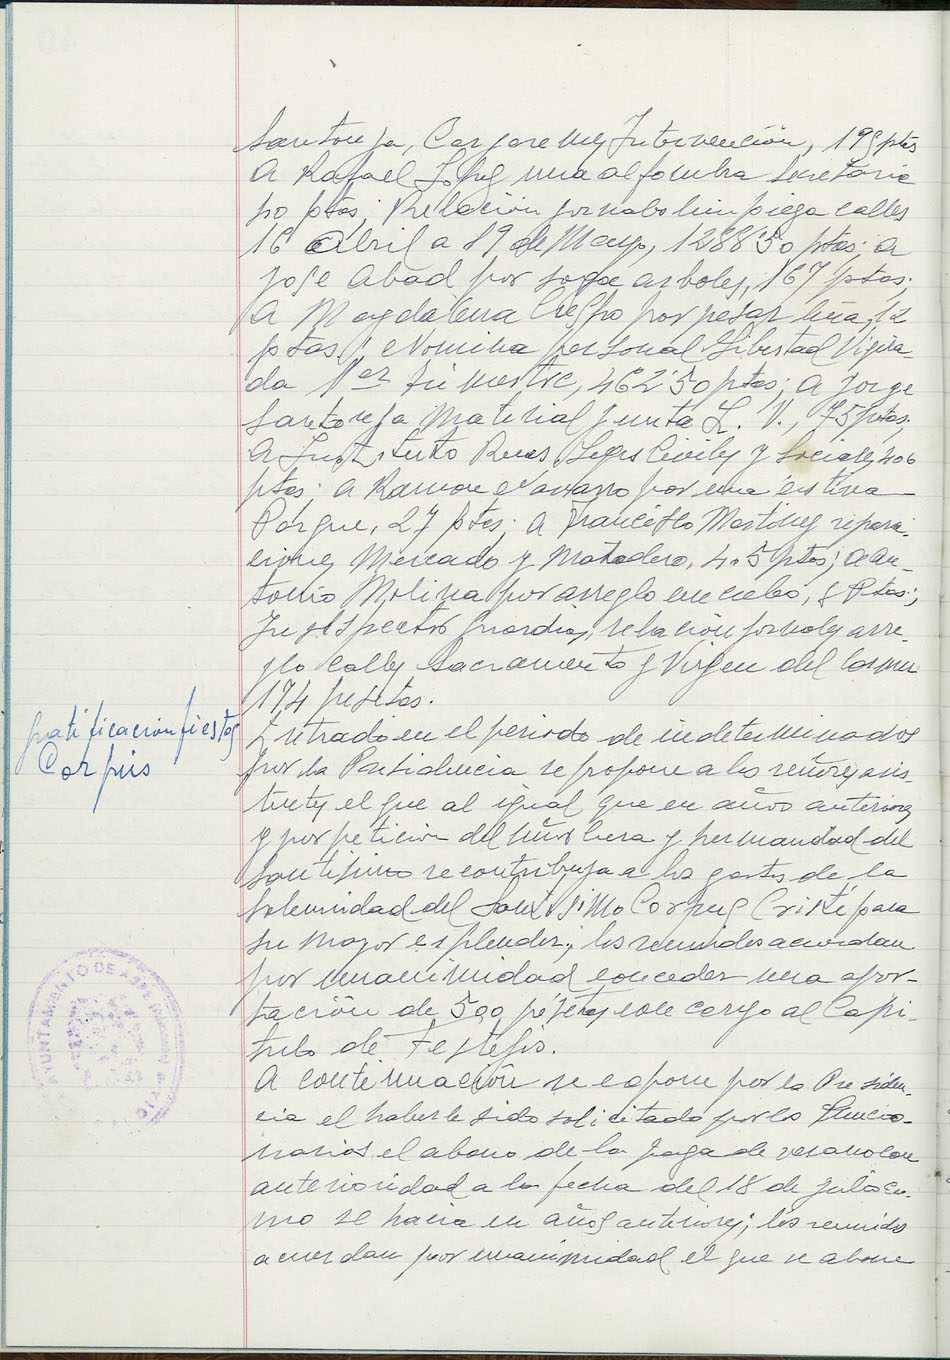 Santonja, Cargareme Intervención, 195 ptas
A Rafael una alfombra Secretaria
ptas; Relación jornales limpieza calles
16 Abril a 19 de Mayo, 1288'50 ptas; a
Jose Abad por arboles, 167 ptas;
A Magdalena Crespo por pesar leña, 12
ptas; Nomina personal Libertad Vigila-
da 1er trimestre, 462'50 ptas; a Jorge
Santonja Material Junta L. V., 75 ptas;
A Instituto Civiles y Sociales, 406
ptas; a Ramon Navarro por una
Parque, 27 ptas; a Francisco Martinez repara-
ciones Mercado y Matadero, ptas; a An-
tonio Molina por arreglo un cubo, 8 Ptas;
Guardias, relación jornales arre-
glo calles Sacramento y Virgen del Carmen
174 pesetas.
Gratificacion fiestas
Corpus
Entrado en el periodo de indeterminados
por la Presidencia se propone a los señores asis-
tentes el que al igual que en años anteriores
y por peticion del Señor Cura y hermandad del
Santisimo se contribuya a los gastos de la
Solemnidad del Santisimo Corpus Cristi para
su mayor esplendor; los reunidos acuerdan
por unanimidad conceder una apor-
tación de 500 pesetas con cargo al Capi-
tulo de Festejos.
A continuación se expone por la Presiden-
cia el haberle sido solicitado por los funcio-
narios el abono de la paga de verano con
anterioridad a la fecha del 18 de Julio co-
mo se hacia en años anteriores; los reunidos
acuerdan por unanimidad el que se abone
AYUNTAMIENTO DE ASPE